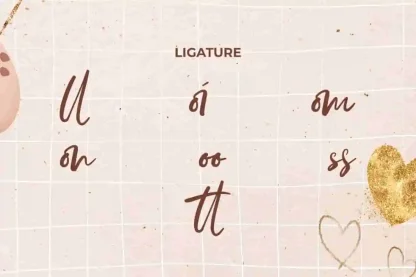 LIGATURE
ll oi om
on oo ss
tt